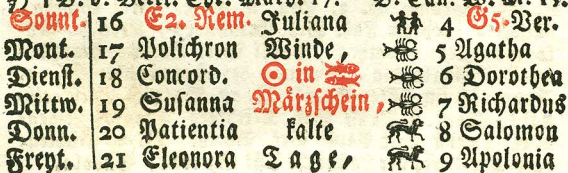 Sonnt. 16 E2. Rem. Juliana 4 G5. Ver.
Mont. 17 Polichron Winde, 5 Agatha
Dienst. 18 Concord. ☉ in ♓ 6 Dorothea
Mittw. 19 Susanna Märzschein, 7 Richardus
Donn. 20 Patientia kalte 8 Salomon
Freyt. 21 Eleonora Tage, 9 Apolonia